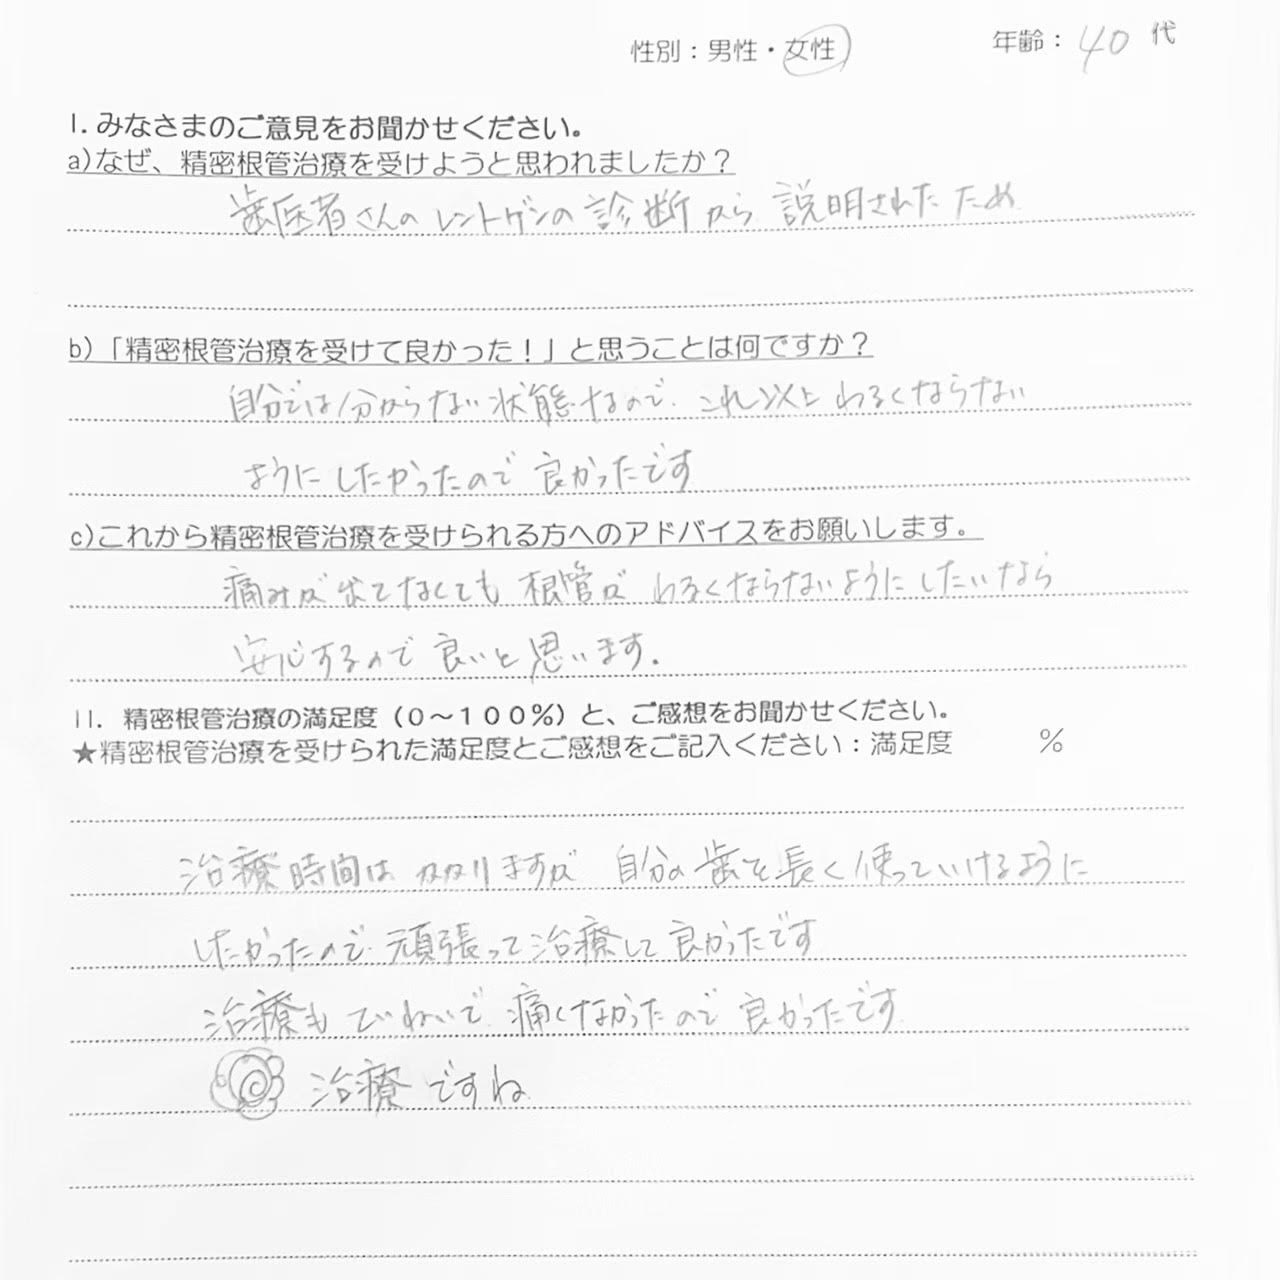 性別：男性・女性 年齢：40代
I. みなさまのご意見をお聞かせください。
a)なぜ、精密根管治療を受けようと思われましたか？
歯医者さんのレントゲンの診断から説明されたため
b)「精密根管治療を受けて良かった！」と思うことは何ですか？
自分では分からない状態なので、これ以上わるくならない
ようにしたかったので良かったです
c)これから精密根管治療を受けられる方へのアドバイスをお願いします。
痛みが出てなくても根管がわるくならないようにしたいなら
安心するので良いと思います.
II. 精密根管治療の満足度（0～100%）と、ご感想をお聞かせください。
★精密根管治療を受けられた満足度とご感想をご記入ください：満足度 %
治療時間はかかりますが自分の歯を長く使っていけるように
したかったので頑張って治療して良かったです
治療もていねいで、痛くなかったので良かったです
治療ですね